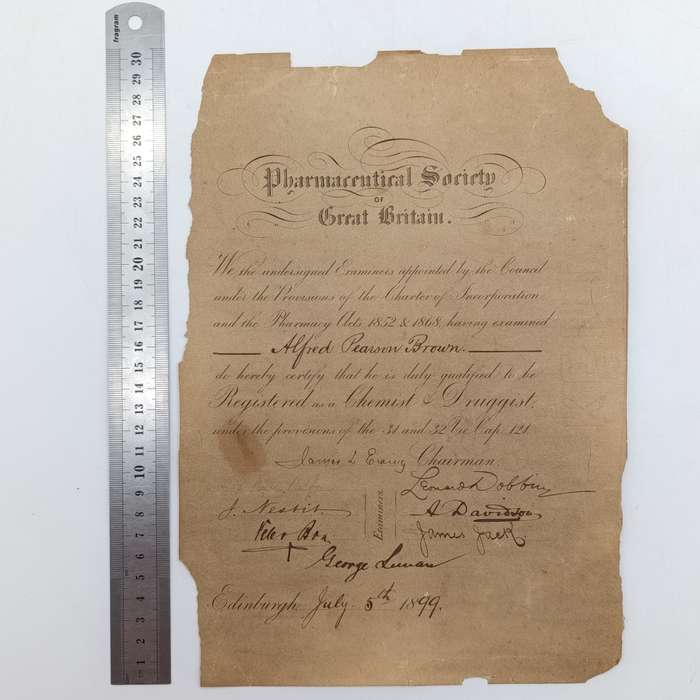 fragram
30
29
28
27
26
25
24
23
22
21
20
19
18
17
16
15
14
13
12
11
10
9
8
7
6
5
4
3
2
1
Pharmaceutical Society
OF
Great Britain.
We the undersigned Examiners appointed by the Council
under the Provisions of the Charter of Incorporation
and the Pharmacy Acts 1852 & 1868, having examined
Alfred Pearson Brown.
do hereby certify that he is duly qualified to be
Registered as a Chemist & Druggist,
under the provisions of the 31 and 32 Vic Cap. 121
James L Ewing Chairman
Leonard Dobbin
J. Nesbit
A Davidson
Peter Boa
James Jack.
Examiners.
George Lunan
Edinburgh July 5th 1899.